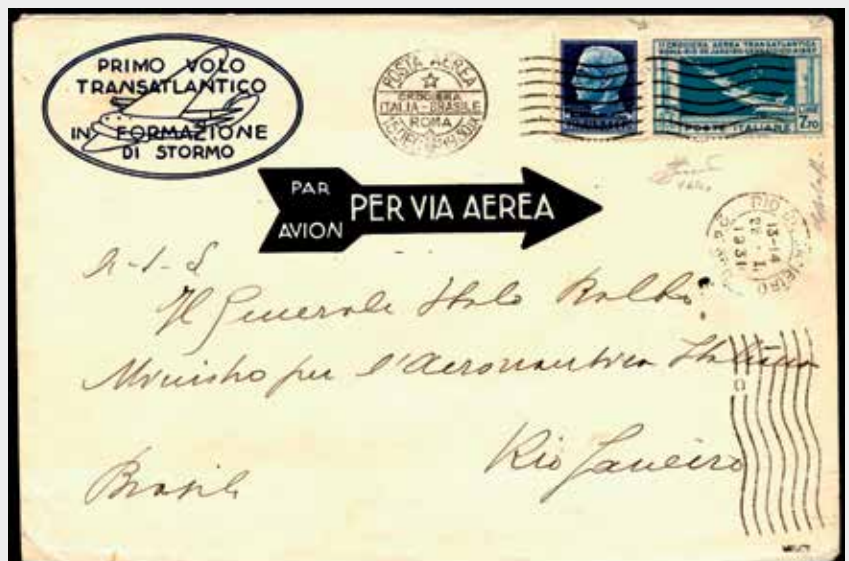 PRIMO VOLO
TRANSATLANTICO
IN FORMAZIONE
DI STORMO
POSTA AEREA
CROCIERA
ITALIA-BRASILE
ROMA
II CROCIERA AEREA TRANSATLANTICA
LIRE
7,70
POSTE ITALIANE
PAR
AVION
PER VIA AEREA
RIO DE JANEIRO
13-14
1931
Il Generale Italo Balbo
Ministro per l'Aeronautica Italiana
Rio Janeiro
Brasile